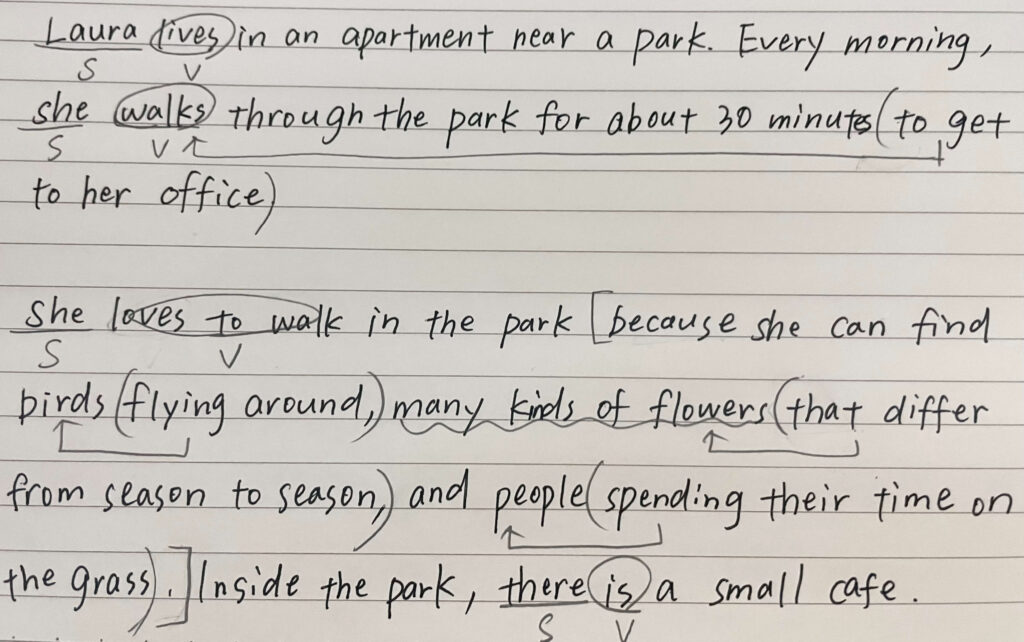 Laura lives in an apartment near a park. Every morning,
S V
she walks through the park for about 30 minutes (to get
S V
to her office)
She loves to walk in the park [because she can find
S V
birds (flying around,) many kinds of flowers (that differ
from season to season,) and people (spending their time on
the grass).] Inside the park, there is a small cafe.
S V